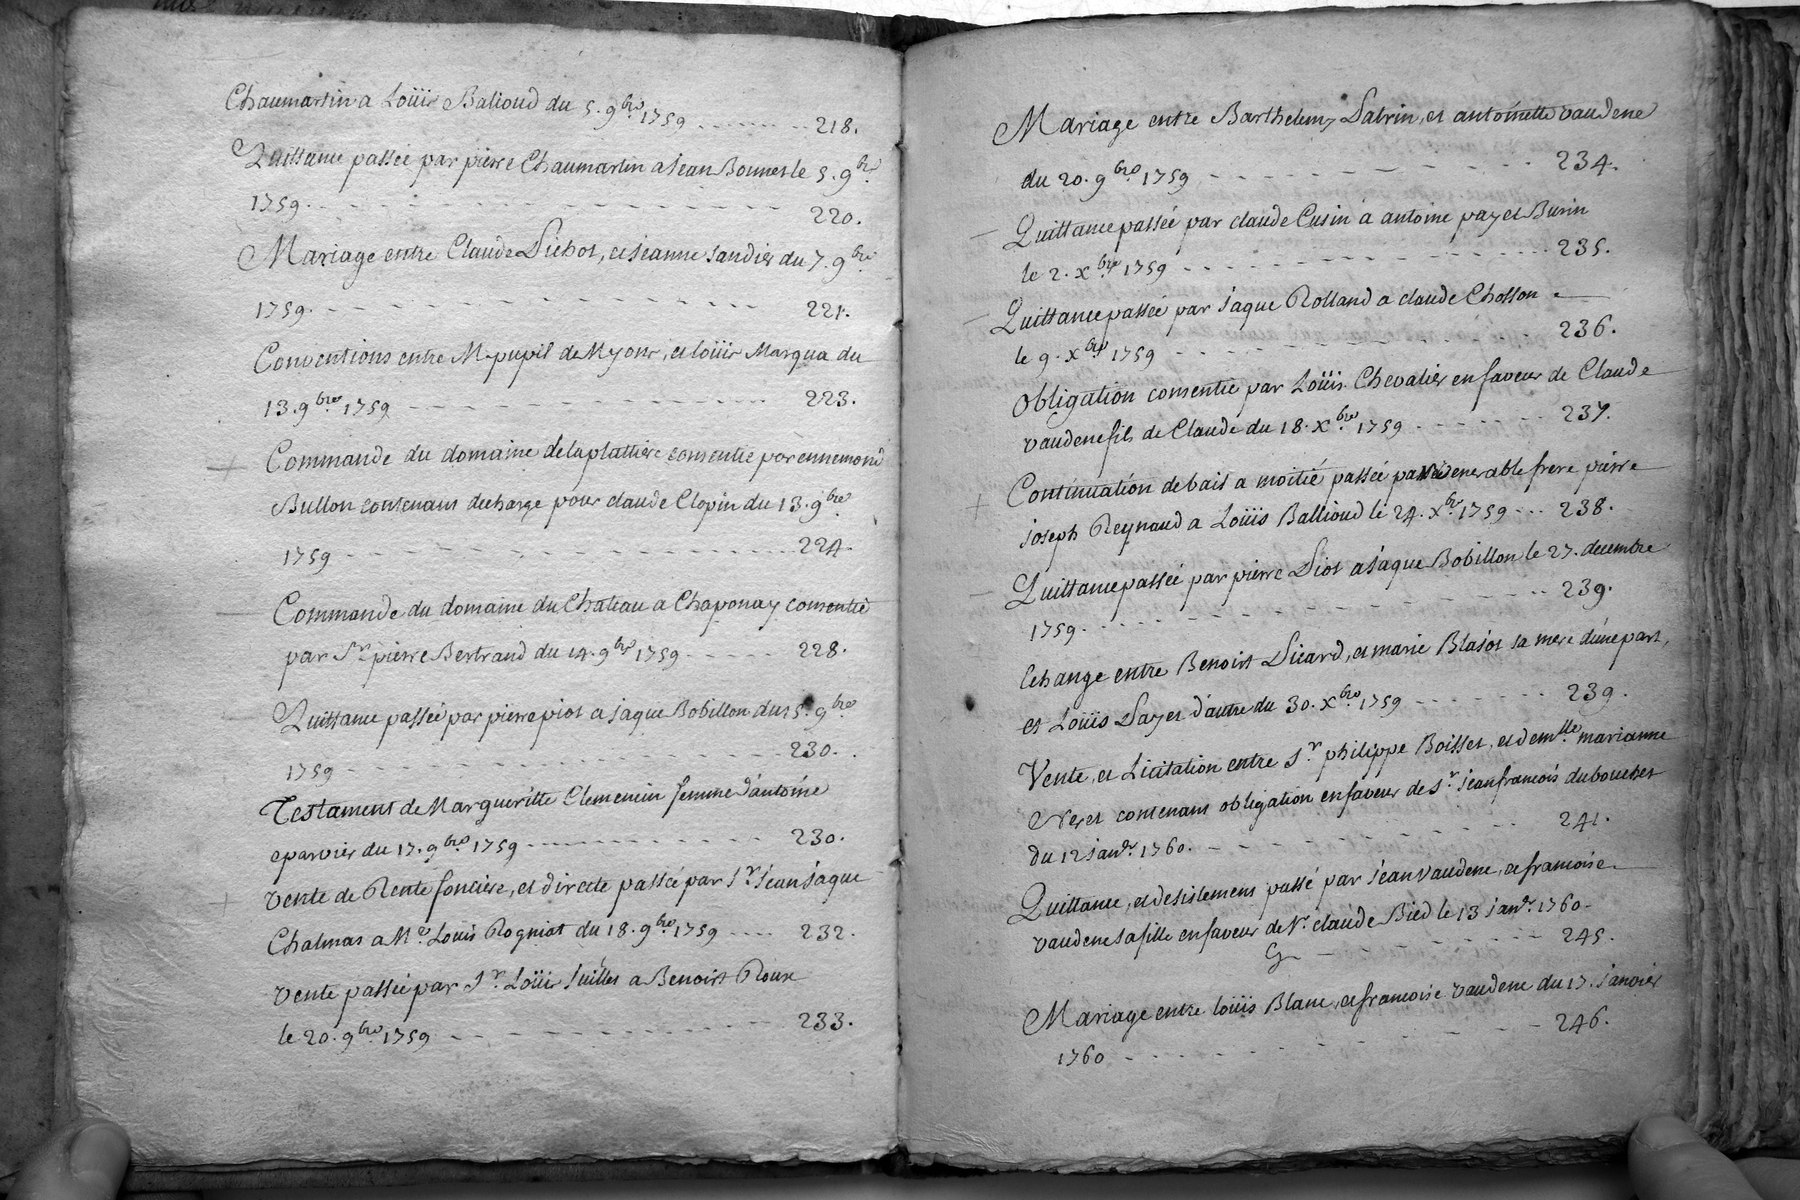 Chaumartin a Loüis Balioud du 5. 9bre 1759 ........ 218.
Quittance passée par pierre Chaumartin a jean Bonnet le 5. 9bre
1759. - - - - - - - - 220.
Mariage entre Claude Pichot, et jeanne jandier du 7. 9bre
1759. - - - - - - - - 221.
Conventions entre Mr pupil de Myons, et loüis Marqua du
13. 9bre 1759 - - - - - - - - 223.
Commande du domaine de laplattiere consentie par ennemond
Bullon contenant decharge pour claude Clopin du 13. 9bre
1759 - - - - - - - - 224.
Commande du domaine du Chateau a Chaponay consentie
par Sr pierre Bertrand du 14. 9bre 1759 - - - - - 228.
Quittance passée par pierre piot a jaque Bobillon du 15. 9bre
1759 - - - - - - - - 230.
Testament de Margueritte Clemencin femme d'antoine
eparvier du 17. 9bre 1759 - - - - - - - - 230.
Vente de Rente fonciere, et directe passée par Sr jean jaque
Chalmas a Me Louis Rogniat du 18. 9bre 1759 .... 232.
Vente passée par Sr. Loüis juilles a Benoist Roux
le 20. 9bre 1759 - - - - - - - - 233.
Mariage entre Barthelemy Patrin, et antoinette vaudene
du 20. 9bre 1759 - - - - - - - - 234.
Quittance passée par claude Cusin a antoine payet Burin
le 2. Xbre 1759 - - - - - - - - 235.
Quittance passée par jaque Rolland a claude Chosson
le 9. Xbre 1759 - - - - - - - - 236.
Obligation consentie par Loüis Chevalier en faveur de Claude
vaudene fils de Claude du 18. Xbre 1759 - - - - - 237.
Continuation de bail a moitié passée par venerable frere pierre
joseph Reynaud a Loüis Ballioud le 24. Xbre 1759 ... 238.
Quittance passée par pierre Piot a jaque Bobillon le 27. decembre
1759. - - - - - - - - 239.
Echange entre Benoist Picard, et marie Blajot sa mere d'une part,
et Loüis Payet d'autre du 30. Xbre 1759 - - - - - 239.
Vente, et Licitation entre Sr philippe Boisset, et demlle marianne
Neret contenant obligation en faveur de Sr. jean francois dubouchet
du 12 janvr. 1760. - - - - - - - - 241.
Quittance, et desistement passé par jean vaudene, et francoise
vaudene sa fille en faveur de Sr. claude Bied le 13 janvr. 1760.
- - - - - - - - 245.
Mariage entre loüis Blanc, et francoise vaudene du 17. janvier
1760 - - - - - - - - 246.